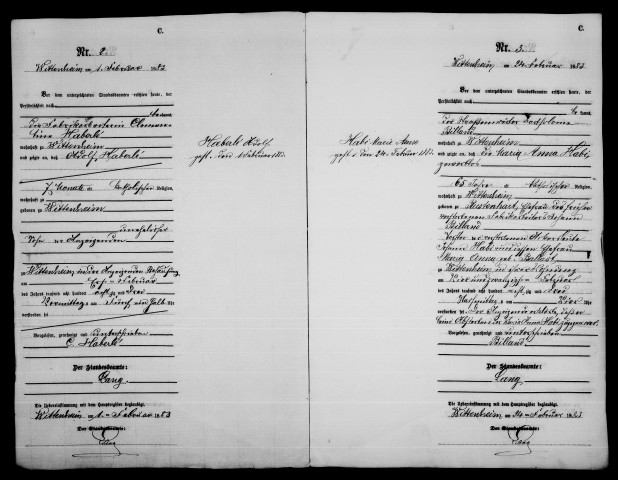 C.
Nr. 2.
Wittenheim, am 1. Februar 1883
Vor dem unterzeichneten Standesbeamten erschien heute, der
Persönlichkeit nach
bekannt,
die Fabrikarbeiterin Clemen-
tine Haberlé
wohnhaft zu Wittenheim
und zeigte an, daß Adolf Haberlé
7 Monate alt, katholischer Religion,
wohnhaft zu
geboren zu Wittenheim
unehelicher
Sohn der Anzeigenden
zu Wittenheim, in der Anzeigenden Behausung
am ersten Februar
des Jahres tausend acht hundert achtzig und drei
Vormittags um fünf ein halb Uhr
verstorben sei
Vorgelesen, genehmigt und unterschrieben
C. Haberlé
Der Standesbeamte:
Lang
Die Uebereinstimmung mit dem Hauptregister beglaubigt.
Wittenheim, am 1. Februar 1883
Der Standesbeamte:
Lang
Haberlé Adolf
gest. den 1 Februar 1883.
C.
Nr. 3.
Wittenheim, am 24. Februar 1883
Vor dem unterzeichneten Standesbeamten erschien heute, der
Persönlichkeit nach
bekannt,
Billand
wohnhaft zu Wittenheim
und zeigte an, daß die Maria Anna Habi,
gewerblos
65 Jahre alt, katholischer Religion,
wohnhaft zu Wittenheim
geboren zu
verstorbenen Fabrikarbeiters
Billand
Tochter der verstorbenen Ackersleute
Habi und dessen Ehefrau
Maria Anna geb.
zu Wittenheim in
am vier und zwanzigsten Februar
des Jahres tausend acht hundert achtzig und drei
Nachmittags um vier Uhr
verstorben sei.
Vorgelesen, genehmigt und unterschrieben
Billand
Der Standesbeamte:
Lang
Die Uebereinstimmung mit dem Hauptregister beglaubigt.
Wittenheim, am 24. Februar 1883
Der Standesbeamte:
Lang
Habi Maria Anna
gest. den 24. Februar 1883.